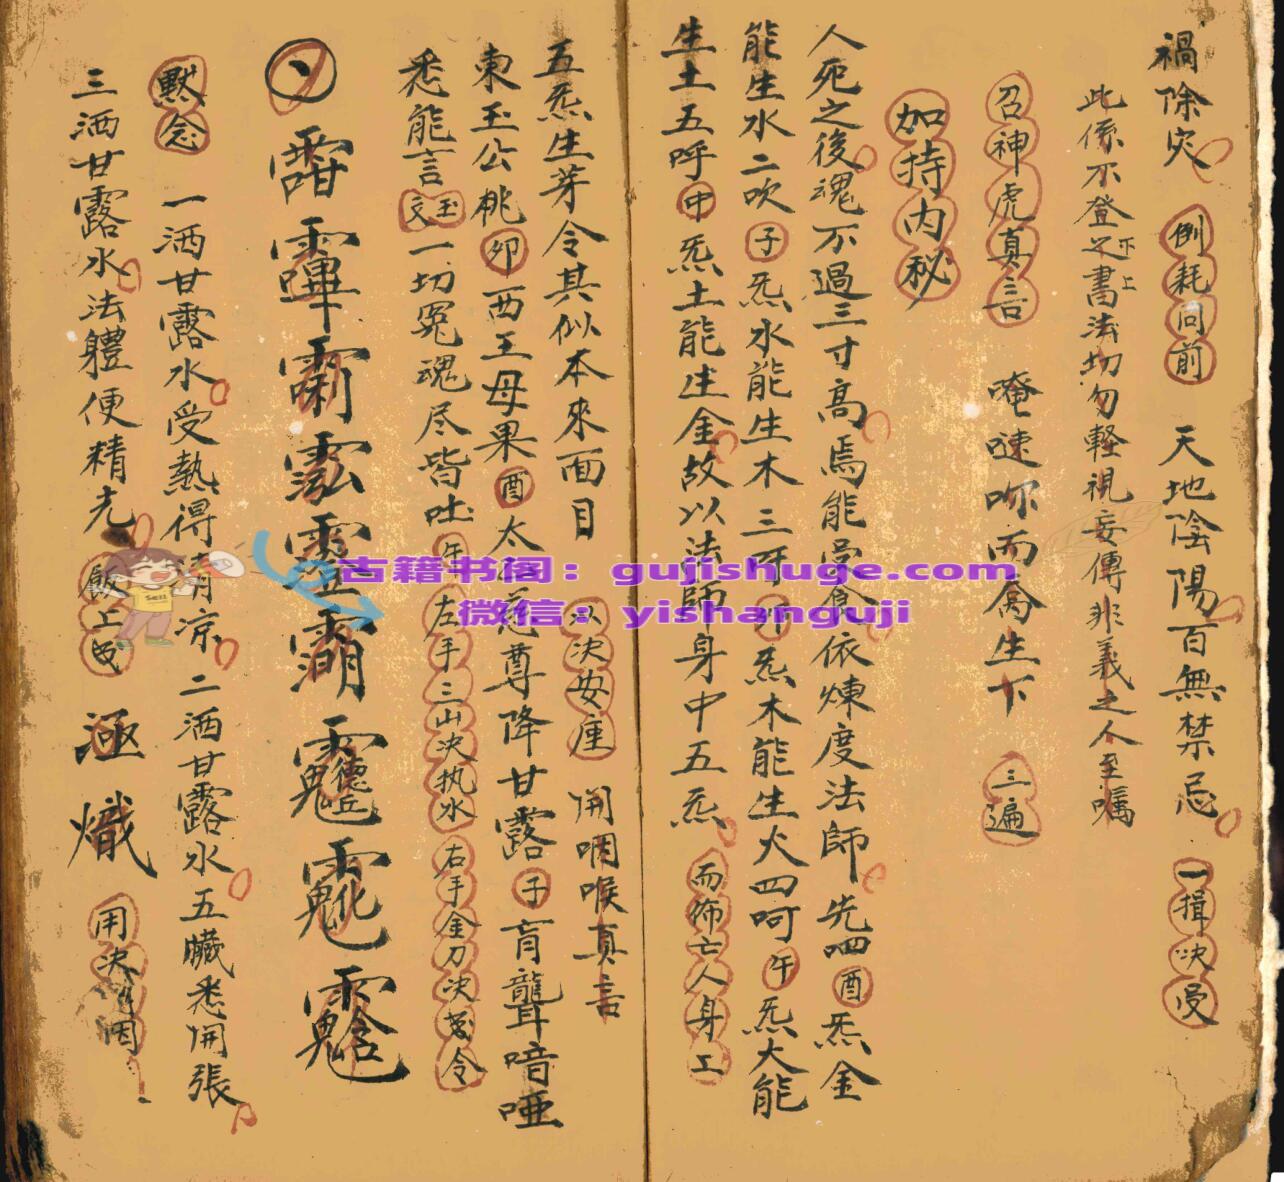 禍除灾 例耗同前 天地陰陽百無禁忌 一揖决受
此係不登之書法切勿軽視妄傳非義之人至嘱
下上
召神虎真言 唵 而禽生下 三遍
加持内秘
人死之後魂不過三寸高焉能受食依煉度法師先呬酉炁金
能生水二吹子炁水能生木三呼卯炁木能生火四呵午炁火能
生土五呼中炁土能生金故以法師身中五炁 而佈亡人身工
五炁生芽令其似本來面目 以决安座 開咽喉真言
東王公桃卯西王母果酉太乙慈尊降甘露子盲聾喑啞
悉能言玉文一切冤魂尽皆吐 午左手三山决执水 右手金刀决 令
默念 一洒甘露水受熱得清凉二洒甘露水五臟悉開張
三洒甘露水法軆便精光 熾 用决 咽
古籍书阁：gujishuge.com
微信：yishanguji